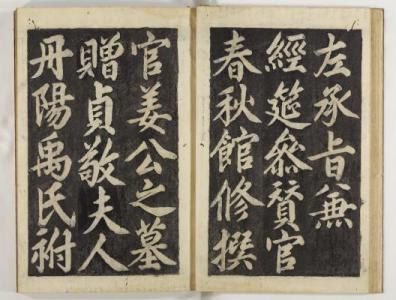 左承旨兼
經筵參贊官
春秋館修撰
官姜公之墓
贈貞敬夫人
丹陽禹氏祔